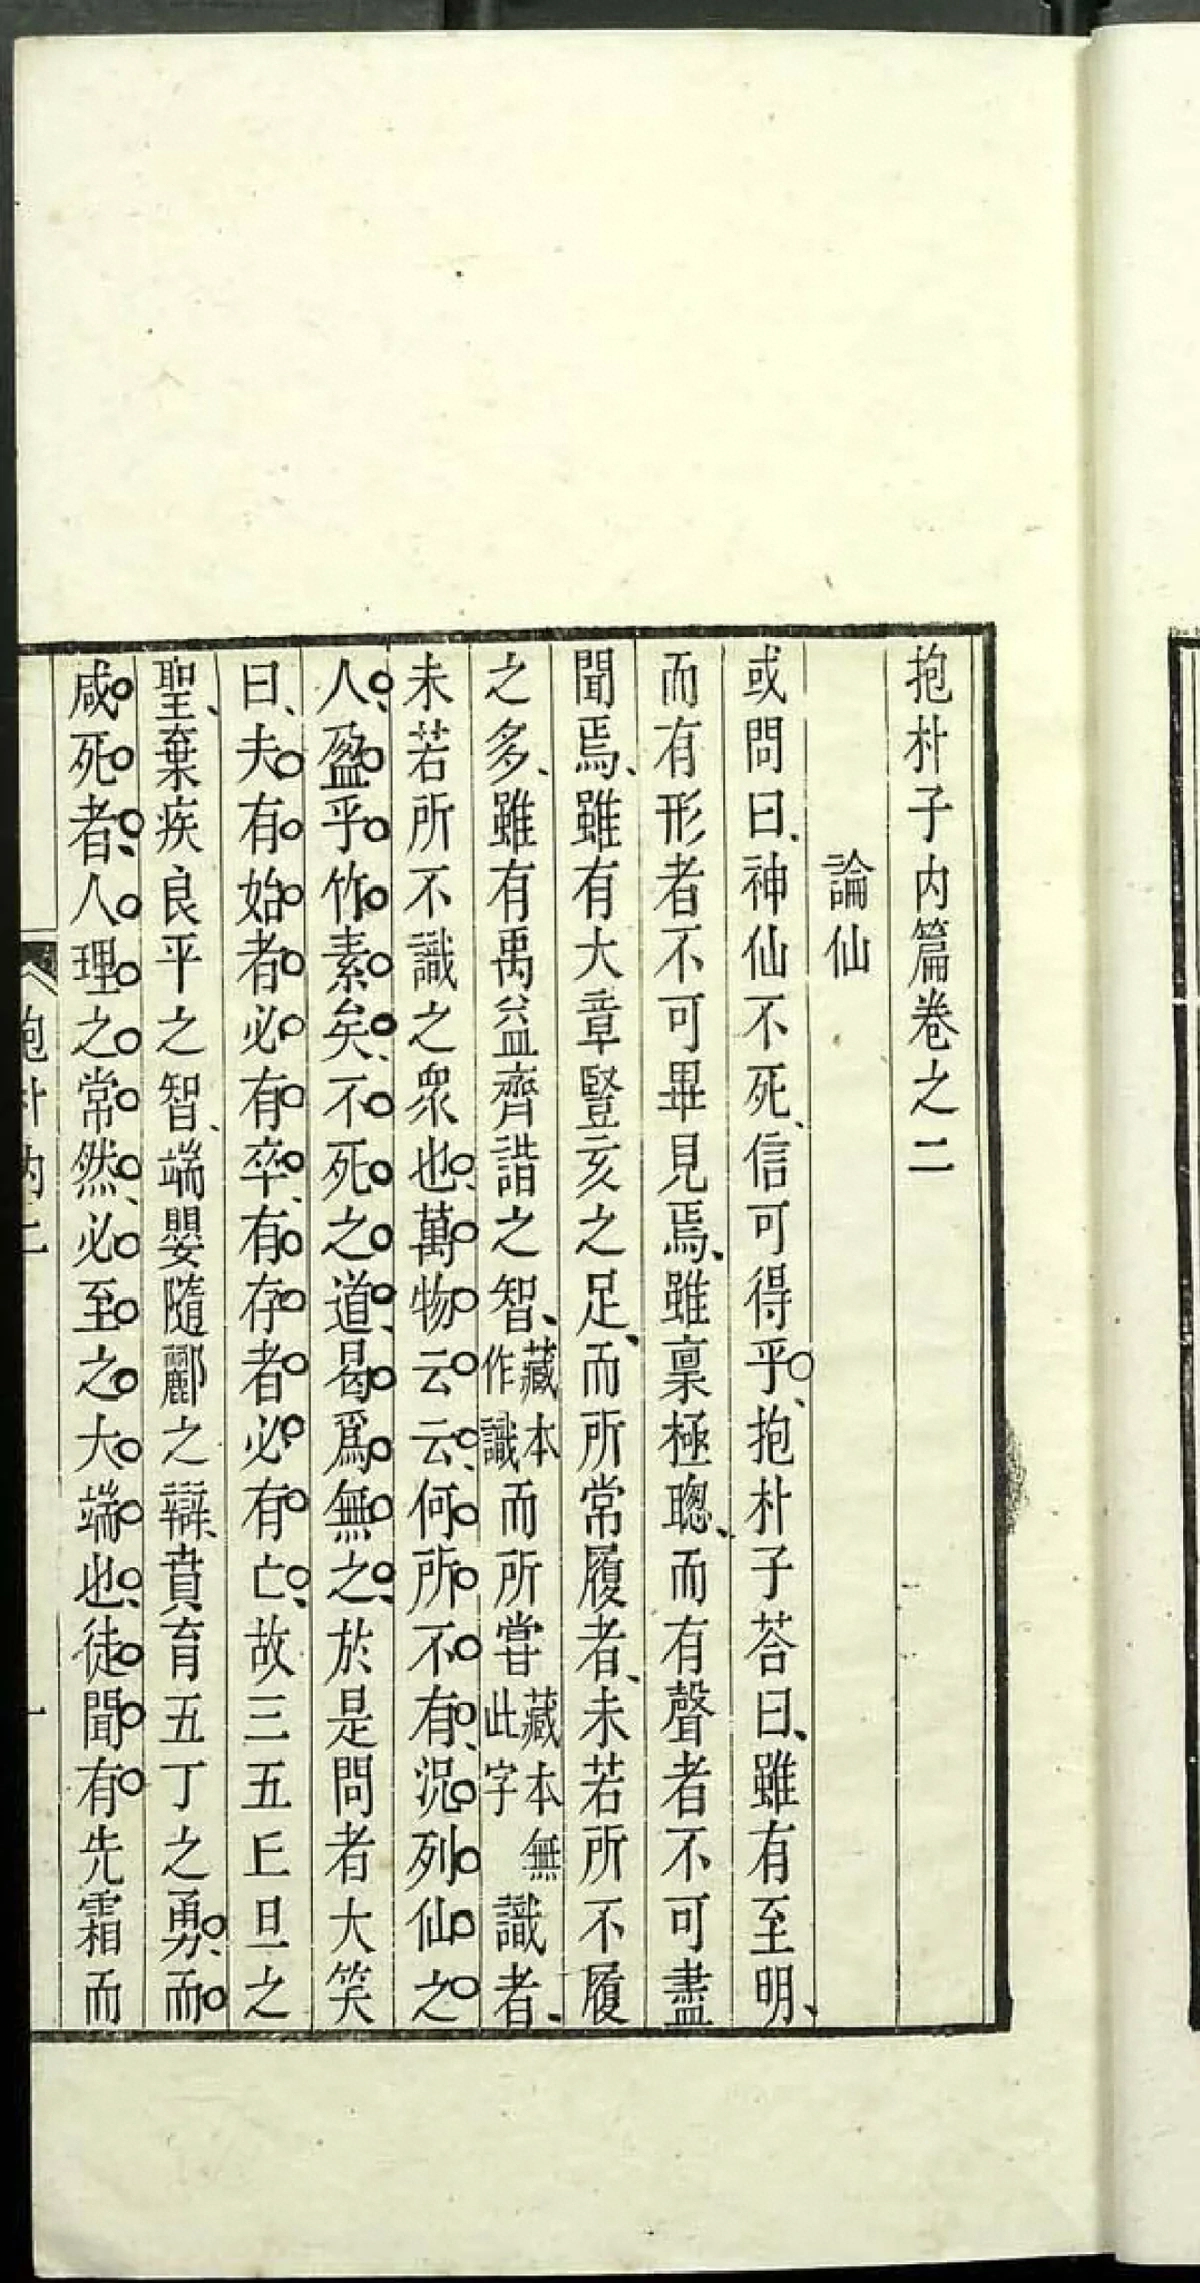 抱朴子内篇卷之二
論仙
或問曰、神仙不死、信可得乎、抱朴子荅曰、雖有至明、
而有形者不可畢見焉、雖稟極聰、而有聲者不可盡
聞焉、雖有大章豎亥之足、而所常履者、未若所不履
之多、雖有禹益齊諧之智、藏本作識而所嘗藏本無此字識者、
未若所不識之衆也、萬物云云、何所不有、況列仙之
人、盈乎竹素矣、不死之道、曷爲無之、於是問者大笑
曰、夫有始者必有卒、有存者必有亡、故三五丘旦之
聖、棄疾良平之智、端嬰隨酈之辯、賁育五丁之勇、而
咸死者、人理之常然、必至之大端也、徒聞有先霜而
抱朴内二
一